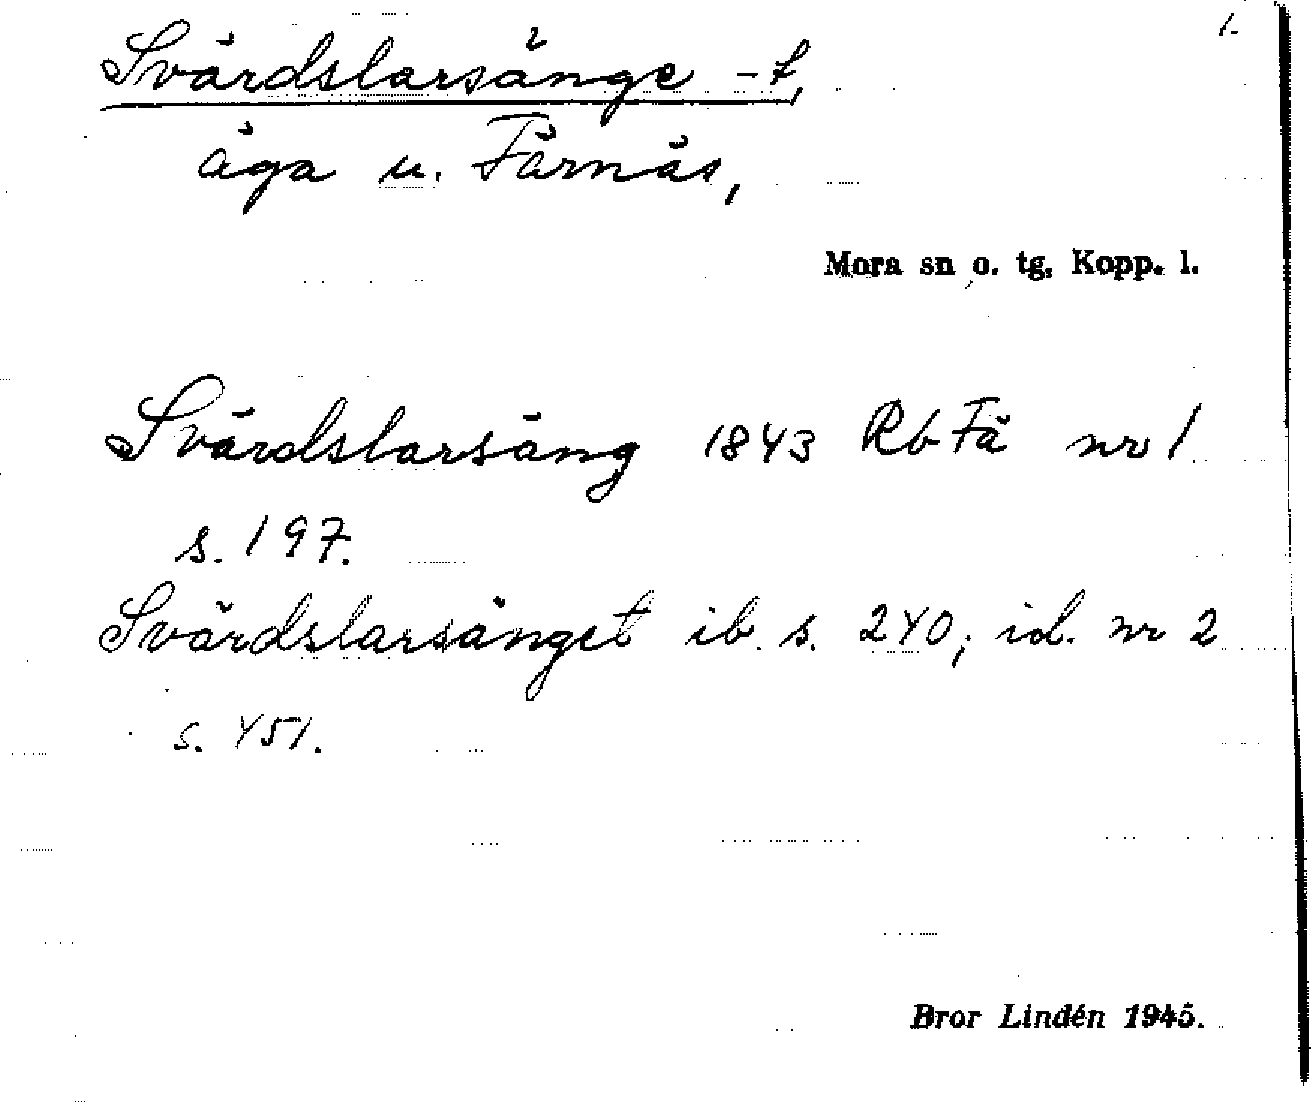 1.
Svärdslarsänge -t,
äga u. Färnäs,
Mora sn o. tg, Kopp. l.
Svärdslarsäng 1843 Rb Fä nr 1
s. 197.
Svärdslarsänget ib. s. 240; id. nr 2
s. 451.
Bror Lindén 1945.